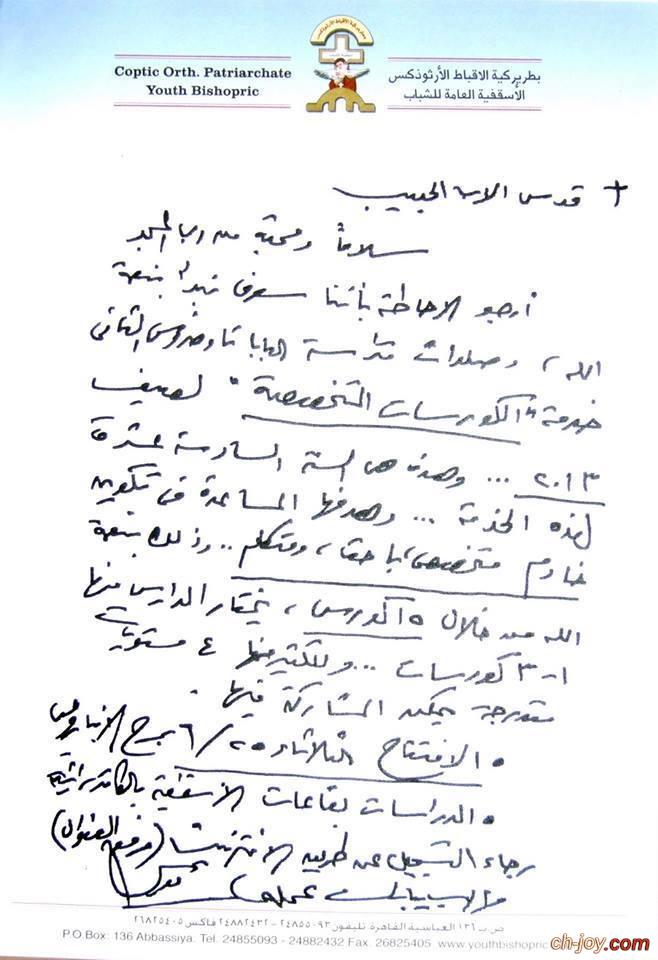 Coptic Orth. Patriarchate
Youth Bishopric
بطريركية الاقباط الأرثوذكس
الأسقفية العامة للشباب
+ قدس الاب الحبيب
سلاماً ومحبة من رب المجد
أرجو الاحاطة بأننا سوف نبدأ بنعمة
الله، وصلوات قداسة البابا تاوضروس الثانى
خدمة "الكورسات التخصصية" لصيف
٢٠١٣ ... وهذه هى السنة السادسة عشرة
لهذه الخدمة ... وهدفها المساعدة فى تكوين
خادم متخصص، باحث، ومتكلم .. وذلك بنعمة
الله من خلال كورس، يختار الدارس منها
١-٣ كورسات ... وللكثير منها ٤ مستويات
متدرجة يمكن المشاركة فيها.
• الافتتاح الثلاثاء ٢٥/٦ بمسرح الأنبا رويس
• الدراسات بقاعات الأسقفية بالكاتدرائية
رجاء التسجيل عن طريق الانترنت (مرفق العنوان)
ص.ب ١٣٦ العباسية القاهرة تليفون: ٢٤٨٥٥٠٩٣ - ٢٤٨٨٢٤٣٢ فاكس ٢٦٨٢٥٤٠٥
P.O Box: 136 Abbassiya. Tel. 24855093 - 24882432 Fax. 26825405 www.youthbishopric
ch-joy.com